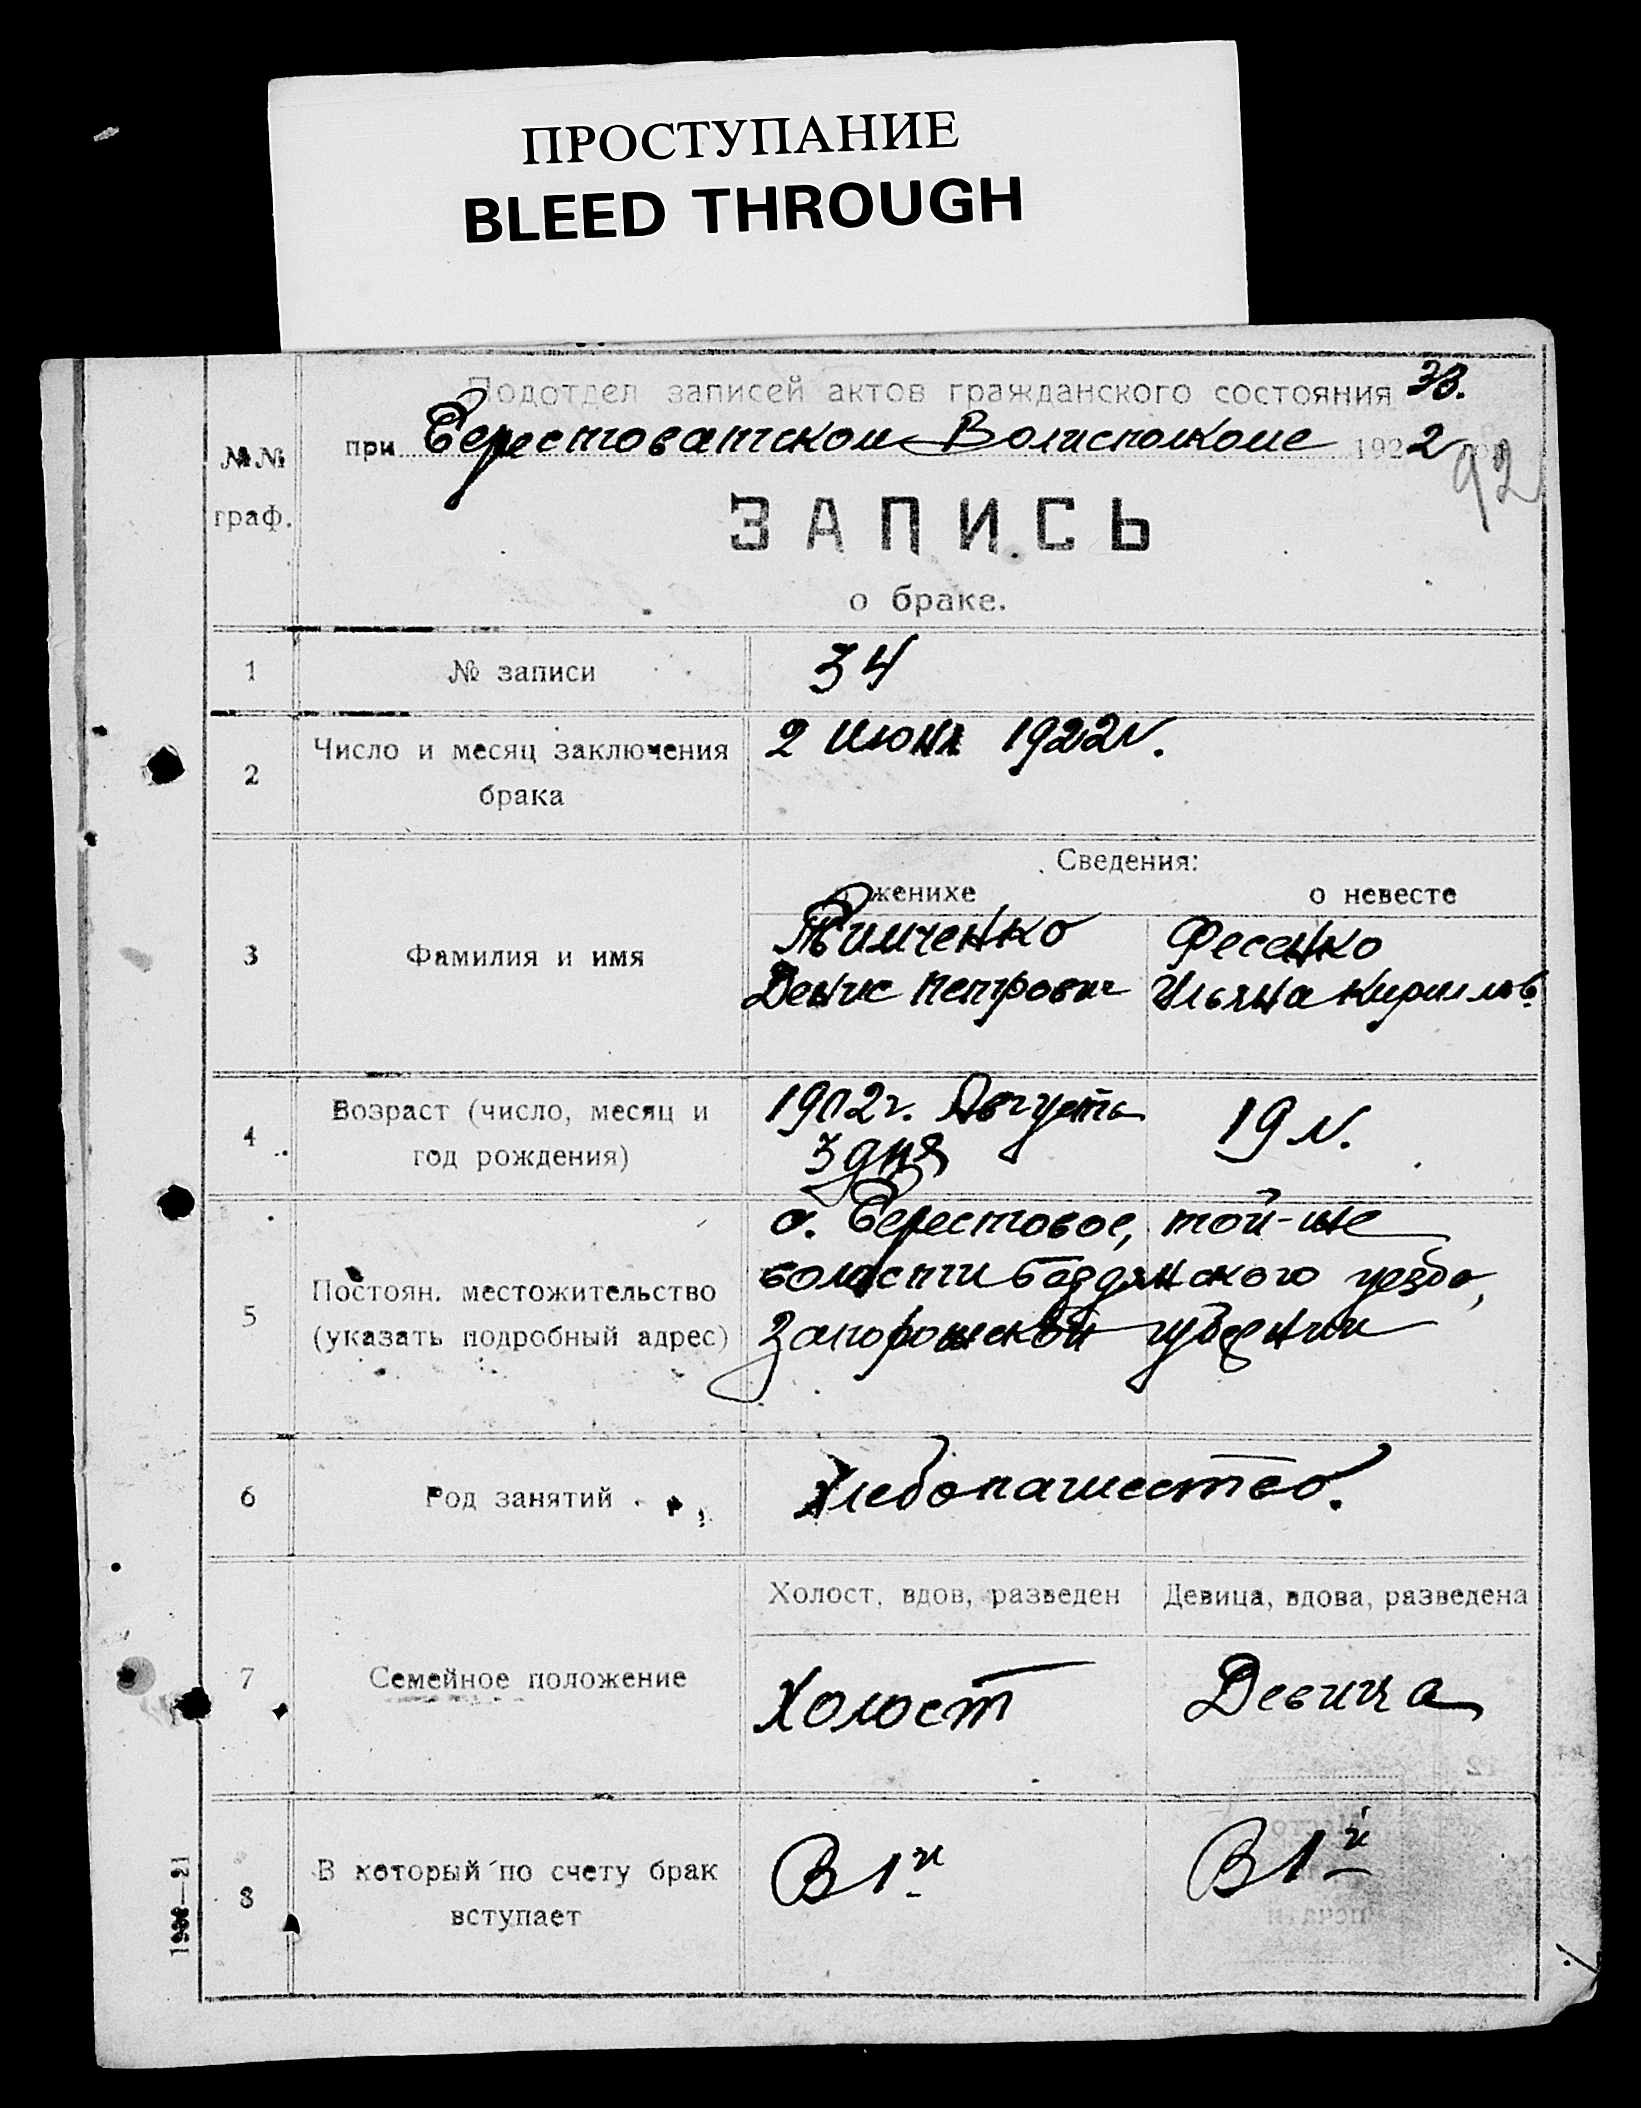 ПРОСТУПАНИЕ
BLEED THROUGH
Подотдел записей актов гражданского состояния
при Берестоватском Волисполкоме 1922
92
№№ граф.
ЗАПИСЬ
о браке.
1 № записи 34
2 Число и месяц заключения брака 2 июня 1922 г.
Сведения:
о женихе о невесте
3 Фамилия и имя
Тимченко Фесенко
Денис Петрович Ульяна Кириллов.
4 Возраст (число, месяц и год рождения)
1902 г. Августа 19 л.
3 дня
5 Постоян. местожительство (указать подробный адрес)
с. Берестовое, той-же
волости Бердянского уезда,
Запорожской губернии
6 Род занятий Хлебопашество.
Холост, вдов, разведен Девица, вдова, разведена
7 Семейное положение Холост Девица
8 В который по счету брак вступает В 1й В 1й